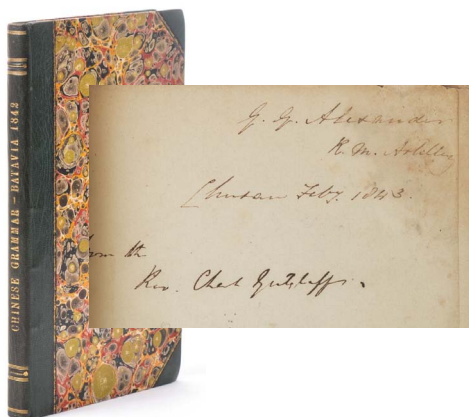 CHINESE GRAMMAR - BATAVIA 1842
G. G. Alexander
R. M. Artillery
Chusan Feby. 1843.
From the
Rev. Chas Gutzlaff.